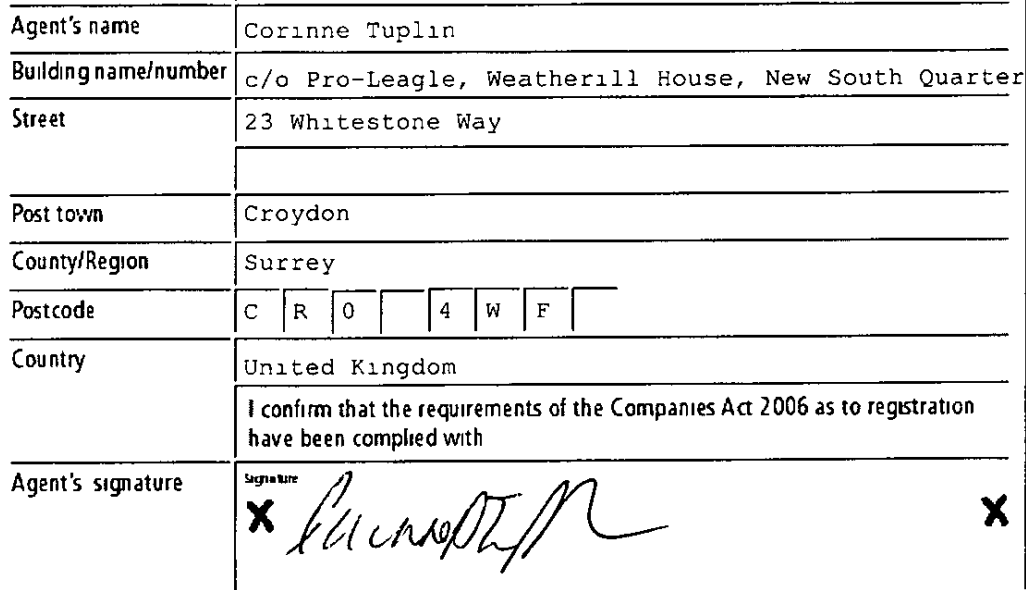 Agent's name Corinne Tuplin
Building name/number c/o Pro-Leagle, Weatherill House, New South Quarter
Street 23 Whitestone Way
Post town Croydon
County/Region Surrey
Postcode C R 0 4 W F
Country United Kingdom
I confirm that the requirements of the Companies Act 2006 as to registration
have been complied with
Agent's signature Signature
X X